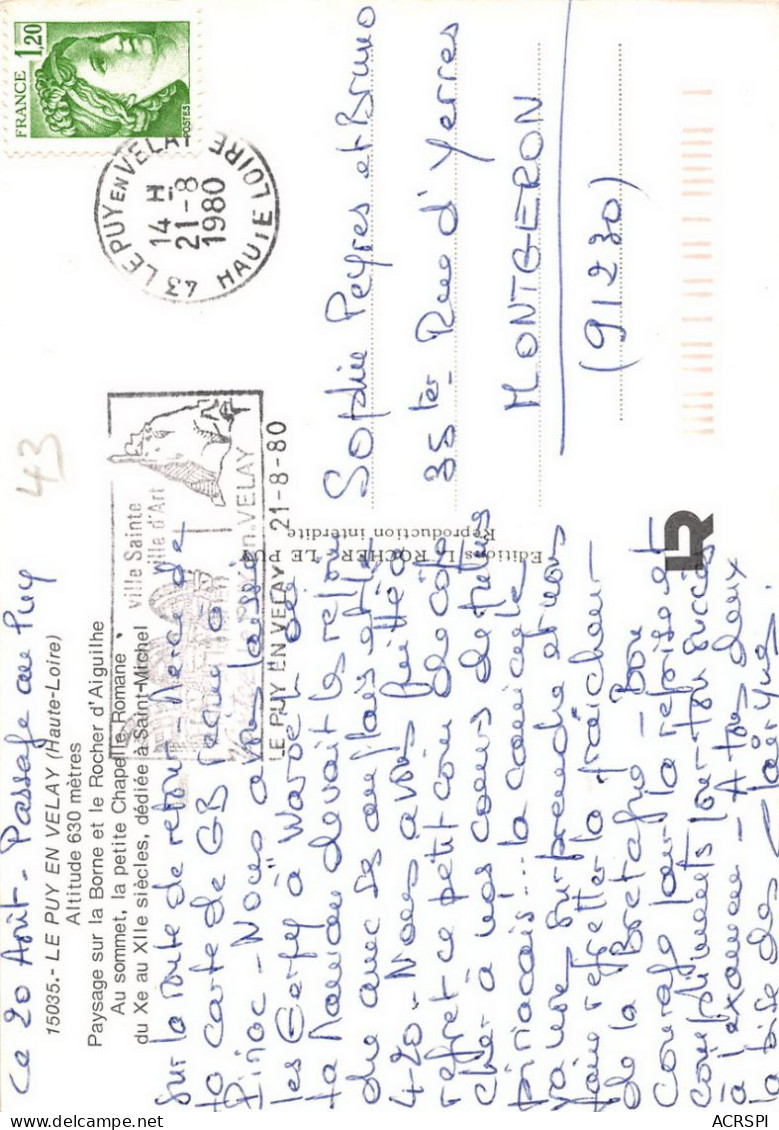 Ce 20 Août - Passage au Puy
15035.- LE PUY EN VELAY (Haute-Loire)
Altitude 630 mètres
Paysage sur la Borne et le Rocher d'Aiguilhe
Au sommet, la petite Chapelle Romane
du Xe au XIIe siècles, dédiée à Saint-Michel
Sur la route de retour - Merci de
ta carte de GB reçue à
Piriac - Nous avons laissé
les Gerfy à
ta maman devait les rejoin
dre avec
4-20 - Nous avons quitté à
regret ce petit coin de côte
cher à nos coeurs de futurs
piriacais... la canicule
va nous surprendre et nous
faire regretter la fraîcheur
de la Bretagne - Bon
courage pour la reprise et
compliments pour ton succès
à l'examen - A tous deux
la bise des
FRANCE 1,20
POSTES
43 LE PUY EN VELAY
14 H
21-8
1980
HAUTE LOIRE
43
ville Sainte
ville d'Art
Le PUY.en.VELAY
LE PUY EN VELAY 21-8-80
Editions LE ROCHER LE PUY
Reproduction interdite
Sophie Peyres et Bruno
35 ter Rue d'Yerres
MONTGERON
(91230)
LR
ACRSPI